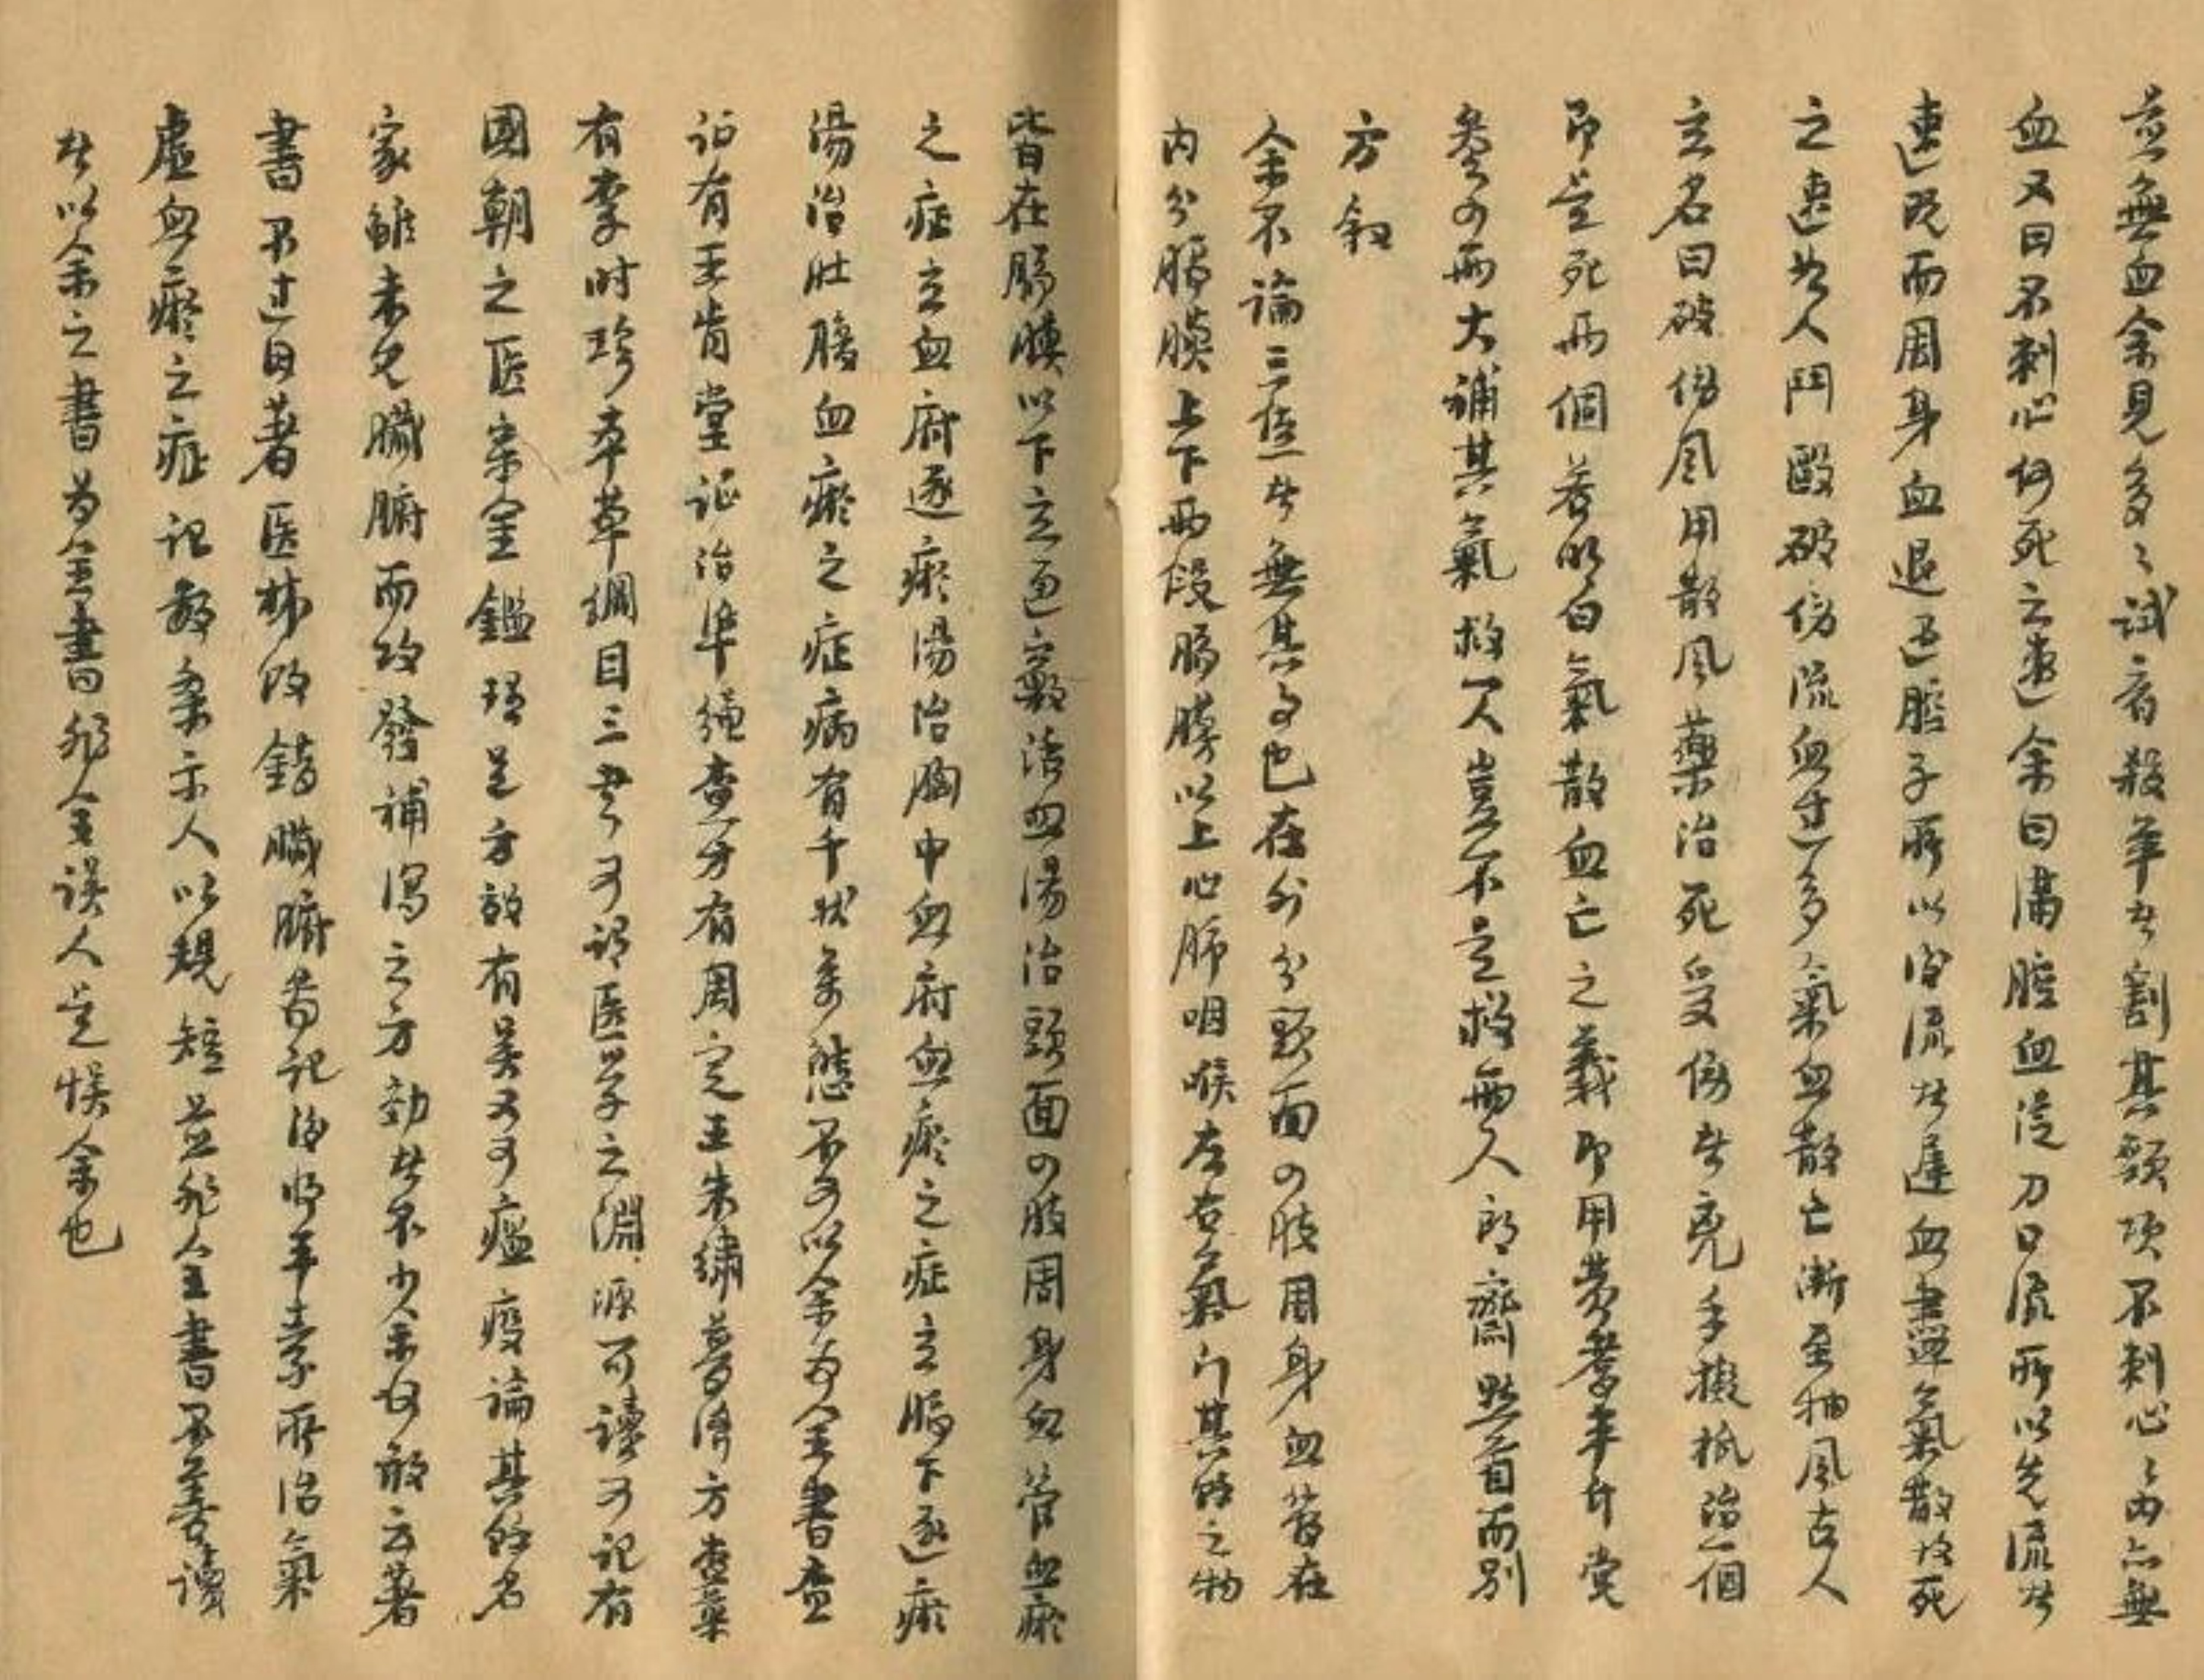 並無血余見多々試看殺羊者割其頸項不刺心々內亦無
血又曰不刺心何死之速余曰滿腔血從刀口流所以先流者
速既而周身血退還腔子所以後流者遲血盡氣散故死
之速如人鬥毆破傷流血過多氣血散亡漸至抽風古人
立名曰破傷風用散風藥治死受傷者兇手擬抵治一個
即是死兩個若明白氣散血亡之義即用黃耆半斤党
參四兩大補其氣救一人豈不是救兩人朗齋點首而別
方叙
余不論三焦者無其事也在外分頭面四肢周身血管在
內分膈膜上下兩段膈膜以上心肺咽喉左右氣門其餘之物
皆在膈膜以下立通竅活血湯治頭面四肢周身血管血瘀
之症立血府逐瘀湯治胸中血府血瘀之症立膈下逐瘀
湯治肚腹血瘀之症病有千狀萬態不可以余為全書查
証有王肯堂証治準繩查方有周定王朱繡普濟方查藥
有李时珍本草綱目三書可謂医學之淵源可讀可記有
國朝之医宗金鑑理足方效有吳又可瘟疫論其餘名
家雖未見臟腑而攻發補瀉之方効者不少余何敢云著
書不过因著医林改錯臟腑圖記後將平素所治氣
虛血瘀之症記數条示人以規矩並非全書不善讀
者以余之書為全書非余誤人是悞余也